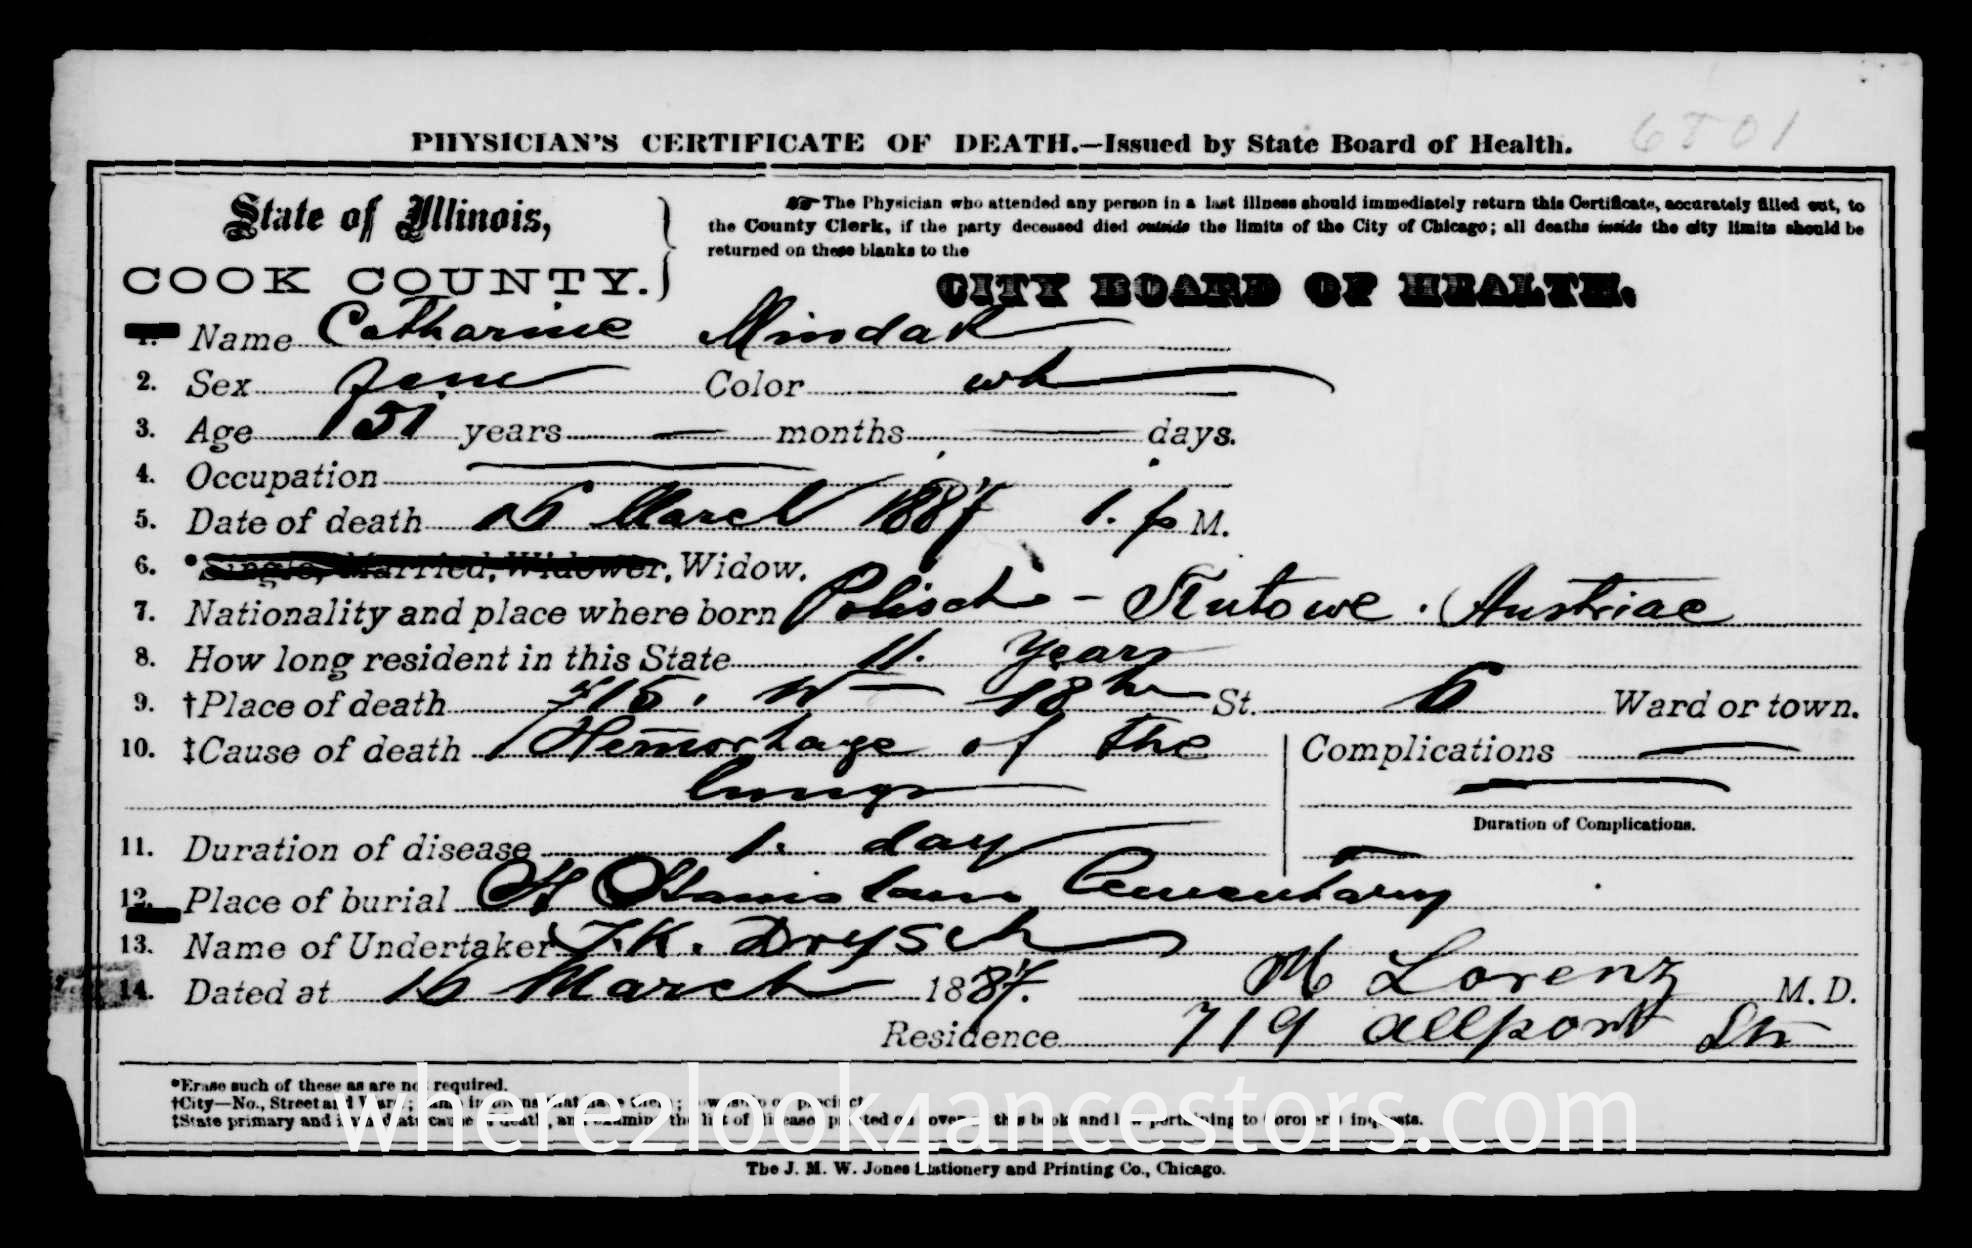 6801
PHYSICIAN'S CERTIFICATE OF DEATH.—Issued by State Board of Health.
State of Illinois,
COOK COUNTY.
The Physician who attended any person in a last illness should immediately return this Certificate, accurately filled out, to
the County Clerk, if the party deceased died outside the limits of the City of Chicago; all deaths inside the city limits should be
returned on these blanks to the
CITY BOARD OF HEALTH.
1. Name Catharine Mindak
2. Sex feme Color wh
3. Age 51 years — months — days.
4. Occupation —
5. Date of death 16 March 1887 1. p M.
6. *Single, Married, Widower, Widow.
7. Nationality and place where born Polisch - Austriae
8. How long resident in this State 11. years
9. †Place of death 715. W — 18th St. 6 Ward or town.
10. ‡Cause of death Hemorhage of the
lungs
Complications —
Duration of Complications.
11. Duration of disease 1. day
12. Place of burial St Stanislaus Cementary
13. Name of Undertaker F.K. Drysch
14. Dated at 16 March 1887. M Lorenz M.D.
Residence 719 allport Str
*Erase such of these as are not required.
†City—No., Street and Ward; name in towns that have them; township or precinct
‡State primary and immediate cause of death, and examine the list of diseases printed on cover of this book and law pertaining to Coroner's inquests.
The J. M. W. Jones Stationery and Printing Co., Chicago.
where2look4ancestors.com